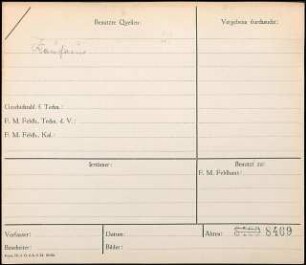 Benutzte Quellen:
Vergebens durchsucht:
Geschichtsbl. f. Techn.:
F. M. Feldh., Techn. d. V.:
F. M. Feldh., Kal.:
Benutzt zu:
F. M. Feldhaus:
Verfasser:
Datum:
Akten:
8409
Bearbeiter:
Bilder: